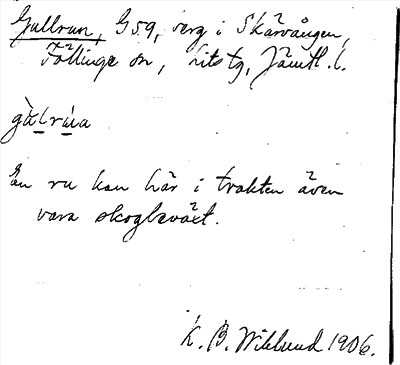 Gullrun, G59, berg i Skärvången,
Föllinge sn, Lits tg, Jämtl. l.
gu̇lrúa
En ru kan här i trakten även
vara skogbeväxt.
K. B. Wiklund 1906.